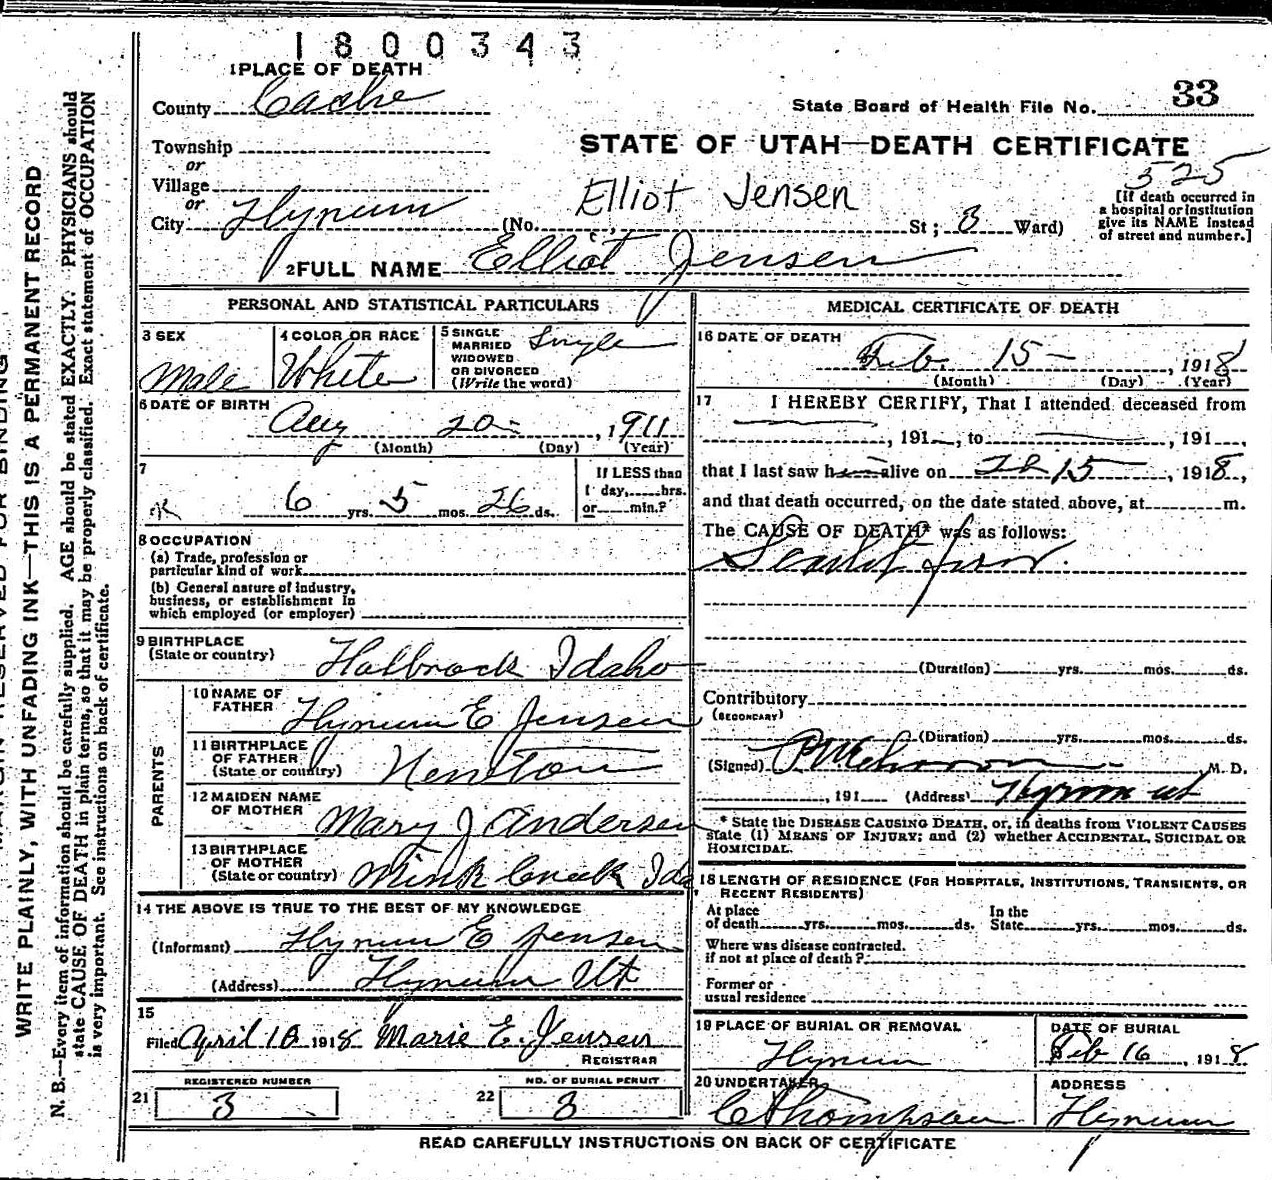 1800343
1 PLACE OF DEATH
County Cache
State Board of Health File No. 33
Township
or
Village
or
City Hyrum
STATE OF UTAH—DEATH CERTIFICATE
525
Elliot Jensen
(No. St; 3 Ward)
[If death occurred in
a hospital or institution
give its NAME instead
of street and number.]
2 FULL NAME Elliot Jensen
PERSONAL AND STATISTICAL PARTICULARS
3 SEX
Male
4 COLOR OR RACE
White
5 SINGLE
MARRIED
WIDOWED
OR DIVORCED
(Write the word)
Single
6 DATE OF BIRTH
Aug 20 , 1911
(Month) (Day) (Year)
7
6 yrs. 5 mos. 26 ds.
If LESS than
1 day, hrs.
or min.?
8 OCCUPATION
(a) Trade, profession or
particular kind of work
(b) General nature of industry,
business, or establishment in
which employed (or employer)
9 BIRTHPLACE
(State or country)
Holbrook Idaho
PARENTS
10 NAME OF
FATHER
Hyrum E Jensen
11 BIRTHPLACE
OF FATHER
(State or country)
Newton
12 MAIDEN NAME
OF MOTHER
Mary J Andersen
13 BIRTHPLACE
OF MOTHER
(State or country)
Mink Creek Ida
14 THE ABOVE IS TRUE TO THE BEST OF MY KNOWLEDGE
(Informant) Hyrum E Jensen
(Address) Hyrum Ut
15
Filed April 10 1918 Marie E. Jensen
REGISTRAR
REGISTERED NUMBER
21 3
NO. OF BURIAL PERMIT
22 3
MEDICAL CERTIFICATE OF DEATH
16 DATE OF DEATH
Feb. 15 , 1918
(Month) (Day) (Year)
17 I HEREBY CERTIFY, That I attended deceased from
, 191 , to , 191 ,
that I last saw him alive on Feb 15 , 1918,
and that death occurred, on the date stated above, at m.
The CAUSE OF DEATH* was as follows:
Scarlet fever.
(Duration) yrs. mos. ds.
Contributory
(SECONDARY)
(Duration) yrs. mos. ds.
(Signed) M. D.
, 191 (Address) Hyrum Ut
* State the DISEASE CAUSING DEATH, or, in deaths from VIOLENT CAUSES
state (1) MEANS OF INJURY; and (2) whether ACCIDENTAL, SUICIDAL OR
HOMICIDAL.
18 LENGTH OF RESIDENCE (FOR HOSPITALS, INSTITUTIONS, TRANSIENTS, OR
RECENT RESIDENTS)
At place
of death yrs. mos. ds.
In the
State yrs. mos. ds.
Where was disease contracted.
if not at place of death?
Former or
usual residence
19 PLACE OF BURIAL OR REMOVAL
Hyrum
DATE OF BURIAL
Feb 16 , 1918
20 UNDERTAKER
C Thompson
ADDRESS
Hyrum
READ CAREFULLY INSTRUCTIONS ON BACK OF CERTIFICATE
WRITE PLAINLY, WITH UNFADING INK—THIS IS A PERMANENT RECORD
N. B.—Every item of information should be carefully supplied. AGE should be stated EXACTLY. PHYSICIANS should
state CAUSE OF DEATH in plain terms, so that it may be properly classified. Exact statement of OCCUPATION
is very important. See instructions on back of certificate.